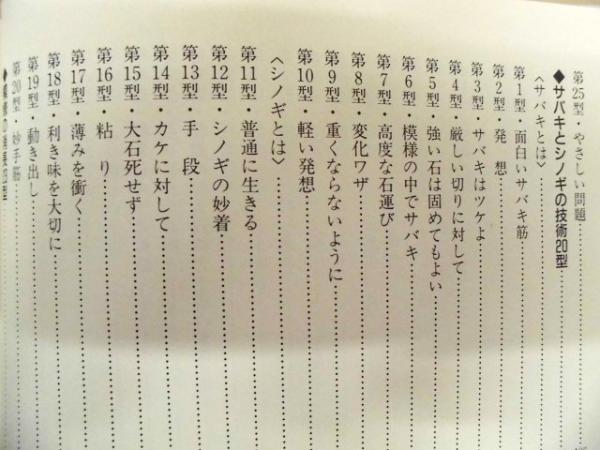 第25型・やさしい問題
◆サバキとシノギの技術20型
〈サバキとは〉
第1型・面白いサバキ筋
第2型・発　想
第3型・サバキはツケよ
第4型・厳しい切りに対して
第5型・強い石は固めてもよい
第6型・模様の中でサバキ
第7型・高度な石運び
第8型・変化ワザ
第9型・重くならないように
第10型・軽い発想
〈シノギとは〉
第11型・普通に生きる
第12型・シノギの妙着
第13型・手　段
第14型・カケに対して
第15型・大石死せず
第16型・粘　り
第17型・薄みを衝く
第18型・利き味を大切に
第19型・動き出し
第20型・妙手筋